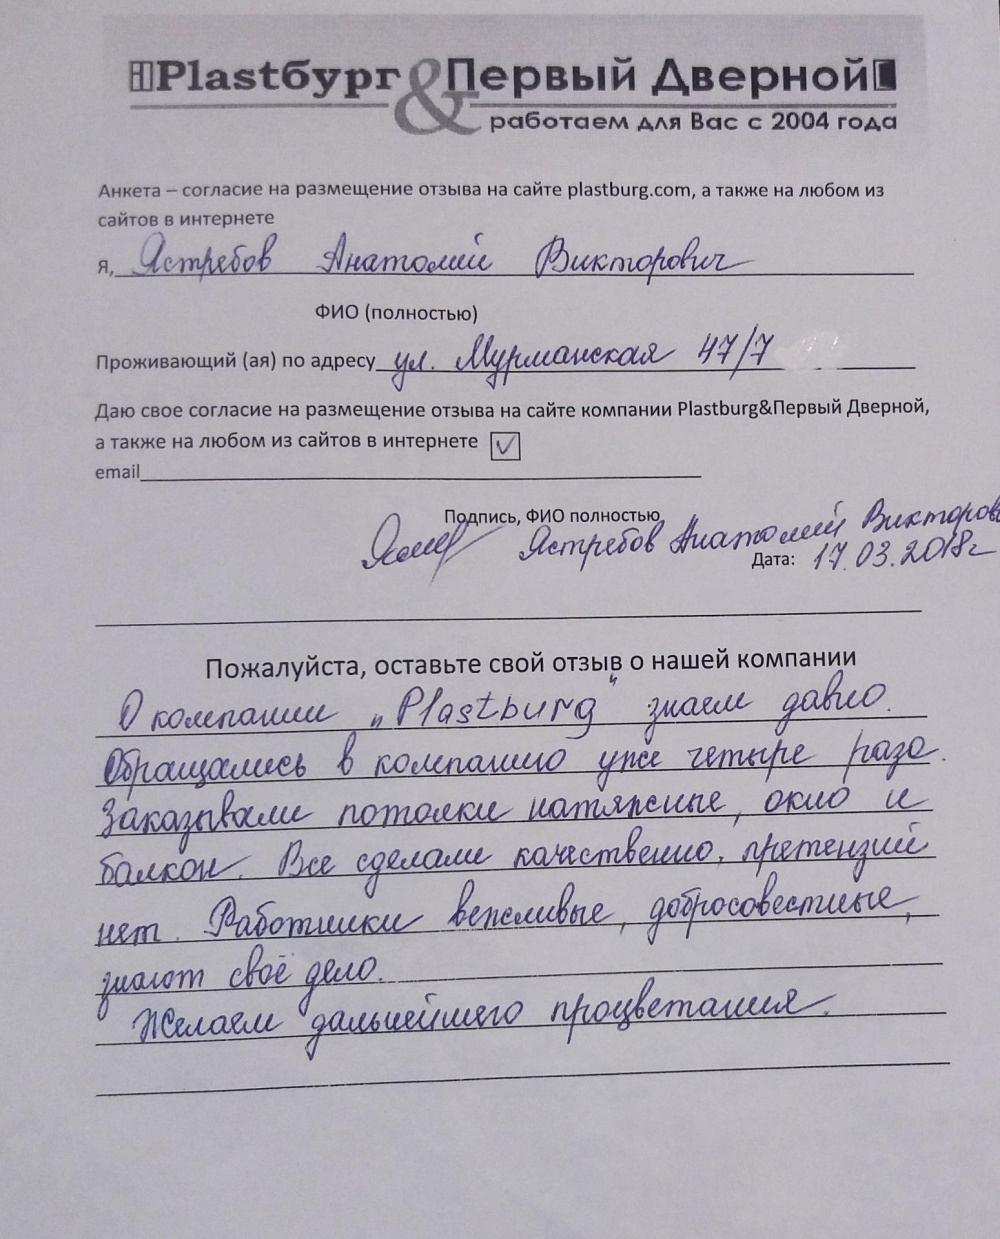 Plastбург & Первый Дверной
работаем для Вас с 2004 года
Анкета – согласие на размещение отзыва на сайте plastburg.com, а также на любом из
сайтов в интернете
я, Ястребов Анатолий Викторович
ФИО (полностью)
Проживающий (ая) по адресу ул. Мурманская 47/7
Даю свое согласие на размещение отзыва на сайте компании Plastburg&Первый Дверной,
а также на любом из сайтов в интернете ☑
email
Подпись, ФИО полностью
Ястребов Анатолий Викторов
Дата: 17.03.2018г
Пожалуйста, оставьте свой отзыв о нашей компании
О компании „Plastburg" знаем давно.
Обращались в компанию уже четыре раза.
Заказывали потолки натяжные, окно и
балкон. Все сделали качественно, претензий
нет. Работники вежливые, добросовестные,
знают своё дело.
Желаем дальнейшего процветания.